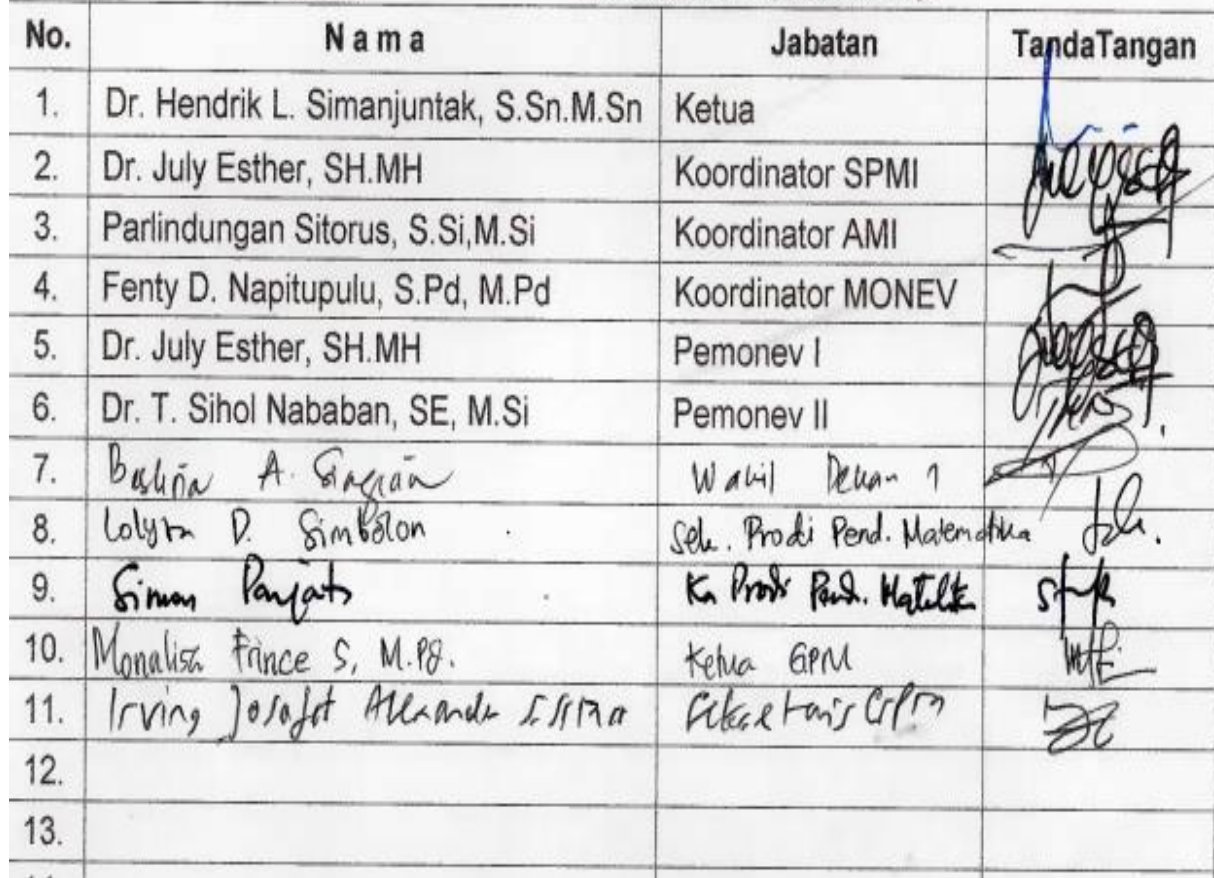 No. Nama Jabatan TandaTangan
1. Dr. Hendrik L. Simanjuntak, S.Sn.M.Sn Ketua
2. Dr. July Esther, SH.MH Koordinator SPMI
3. Parlindungan Sitorus, S.Si,M.Si Koordinator AMI
4. Fenty D. Napitupulu, S.Pd, M.Pd Koordinator MONEV
5. Dr. July Esther, SH.MH Pemonev I
6. Dr. T. Sihol Nababan, SE, M.Si Pemonev II
7. A. Wakil Dekan 1
8. Lolyta D. Simbolon Sek. Prodi Pend. Matematika
9. Simon Panjaitan Ka Prodi Pend.
10. Monalisa Frince S, M.Pd. Ketua GPM
11. Irving Josafat Alexander
12.
13.